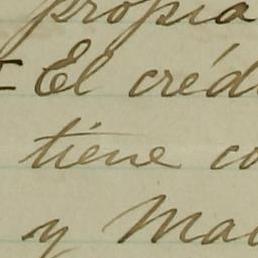 propia
El créd
tiene co
y Ma